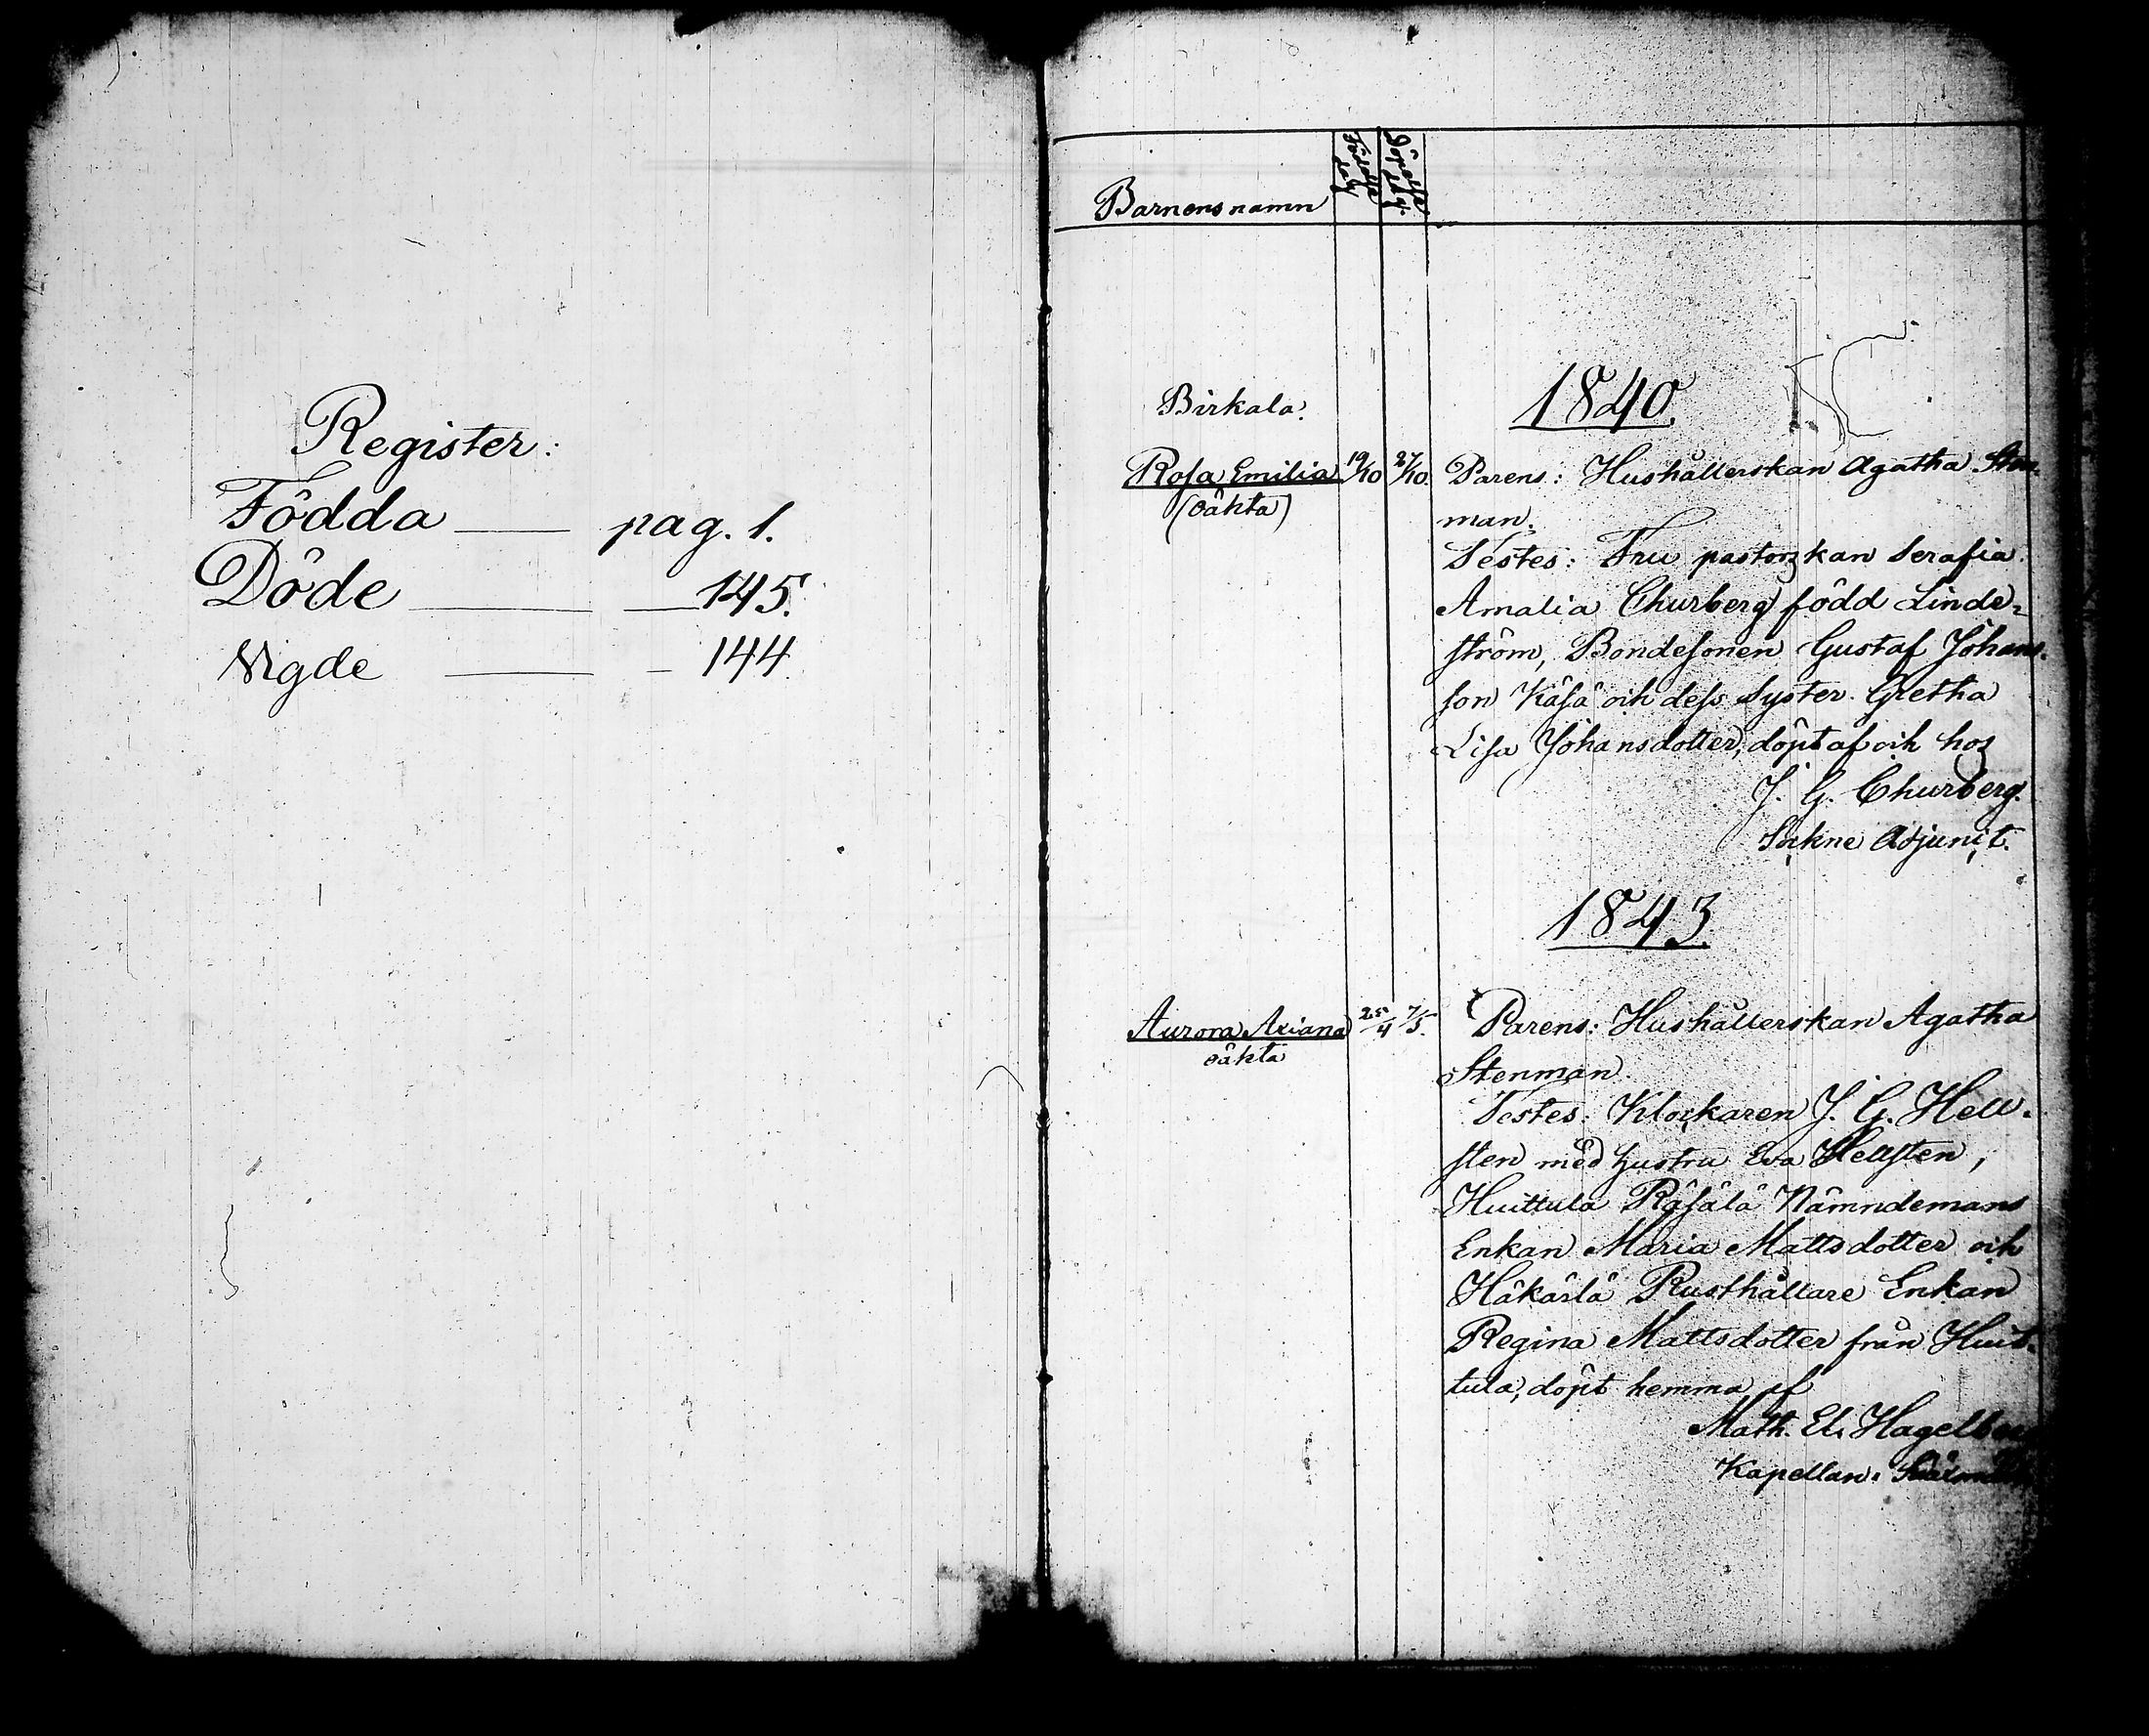 Register:
Födda — pag. 1.
Döde — — 145.
Vigde — — 144.
Barnens namn
Födelse dag
Döpelse dag.
Birkala.
1840.
Rosa Emilia 19/10 27/10. Parens: Hushållerskan Agatha Sten-
(oäkta)
man.
Testes: Fru pastorskan Serafia
Amalia Churberg född Linde-
ström, Bondesonen Gustaf Johans-
son Käsä och dess Syster Gretha
Lisa Johansdotter, döpt af och hos
J. G. Churberg.
Sockne Adjunct.
1843.
Aurora Axiana 25/4 7/5. Parens: Hushållerskan Agatha
oäkta
Stenman.
Testes: Klockaren J. G. Hell-
sten med hustru Eva Hellsten,
Huittula Räfälä Nämndemans
Enkan Maria Mattsdotter och
Häkärlä Rusthållare Enkan
Regina Mattsdotter från Huit-
tula, döpt hemma af
Math. El. Hagelberg
Kapellan.